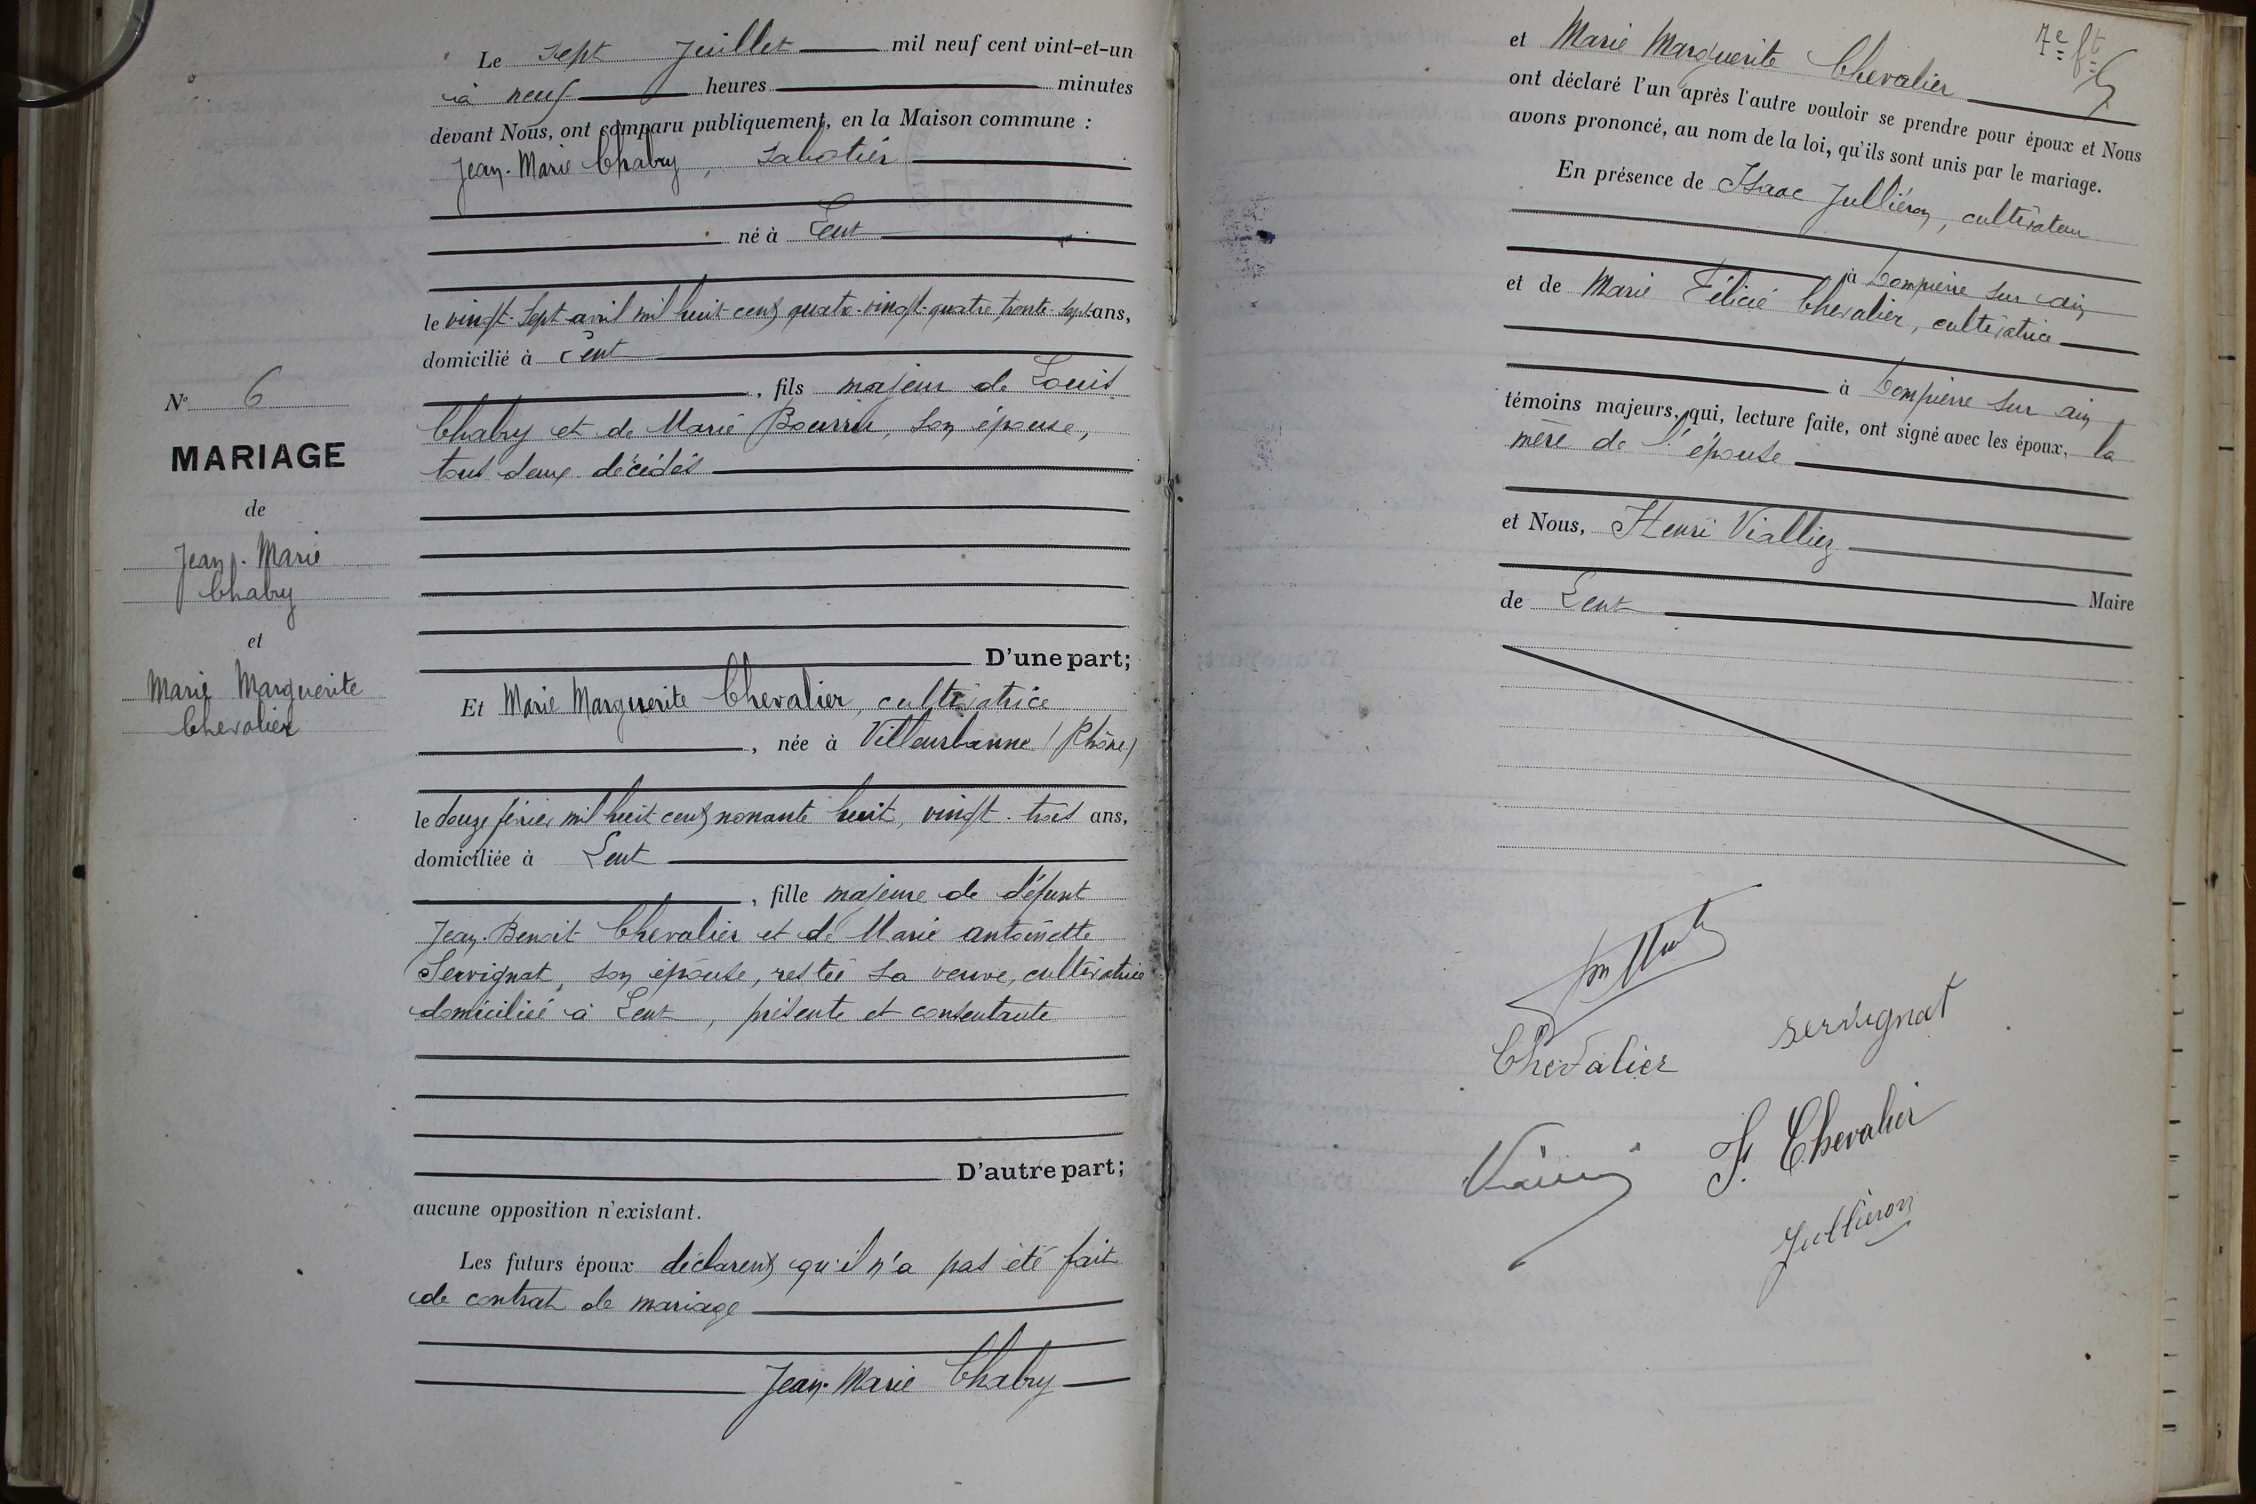 Le sept Juillet mil neuf cent vint-et-un
à neuf heures minutes
devant Nous, ont comparu publiquement, en la Maison commune :
Jean-Marie Chabry, sabotier
né à Lent
le vingt-sept avril mil huit cent quatre-vingt-quatre trente-sept ans,
domicilié à Lent
, fils majeur de Louis
Chabry et de Marie Bourrin, son épouse,
tous deux décédés
D'une part;
Et Marie Marguerite Chevalier, cultivatrice
, née à Villeurbanne (Rhône)
le douze février mil huit cent nonante huit, vingt-trois ans,
domiciliée à Lent
, fille majeure de défunt
Jean-Benoit Chevalier et de Marie antoinette
Servignat, son épouse, restée sa veuve, cultivatrice
domiciliée à Lent, présente et consentante
D'autre part;
aucune opposition n'existant.
Les futurs époux déclarent qu'il n'a pas été fait
de contrat de mariage
Jean-Marie Chabry
N° 6
MARIAGE
de
Jean-Marie
Chabry
et
Marie Marguerite
Chevalier
7e ft
et Marie Marguerite Chevalier
ont déclaré l'un après l'autre vouloir se prendre pour époux et Nous
avons prononcé, au nom de la loi, qu'ils sont unis par le mariage.
En présence de Isaac Julliéron, cultivateur
à Dompierre sur ain
et de Marie Félicie Chevalier, cultivatrice
à Dompierre sur ain
témoins majeurs, qui, lecture faite, ont signé avec les époux, la
mère de l'épouse
et Nous, Henri Viallier
Maire
de Lent
Chevalier
servignat
F. Chevalier
Julliéron